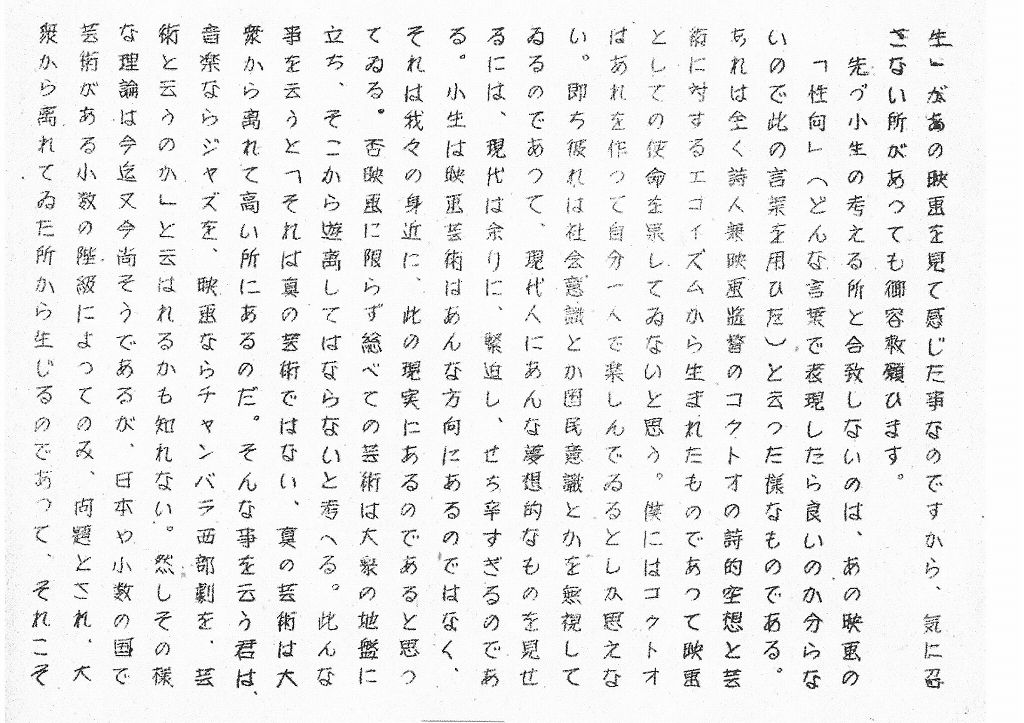 生」があの映画を見て感じた事なのですから、気に召
さない所があつても御容赦願ひます。
先づ小生の考える所と合致しないのは、あの映画の
「性向」（どんな言葉で表現したら良いのか分らな
いので此の言葉を用ひた）と云つた様なものである。
あれは全く詩人兼映画監督のコクトオの詩的空想と芸
術に対するエゴイズムから生まれたものであつて映画
としての使命を果してゐないと思う。僕にはコクトオ
はあれを作つて自分一人で楽しんでゐるとしか思えな
い。即ち彼れは社会意識とか国民意識とかを無視して
ゐるのであつて、現代人にあんな夢想的なものを見せ
るには、現代は余りに、緊迫し、せち辛すぎるのであ
る。小生は映画芸術はあんな方向にあるのではなく、
それは我々の身近に、此の現実にあるのであると思つ
てゐる。否映画に限らず総べての芸術は大衆の地盤に
立ち、そこから遊离してはならないと考へる。此んな
事を云うと「それは真の芸術ではない、真の芸術は大
衆から离れて高い所にあるのだ。そんな事を云う君は、
音楽ならジャズを、映画ならチャンバラ西部劇を、芸
術と云うのか」と云はれるかも知れない。然しその様
な理論は今迄又今尚そうであるが、日本や小数の国で
芸術がある小数の階級によつてのみ、問題とされ、大
衆から离れてゐた所から生じるのであつて、それこそ